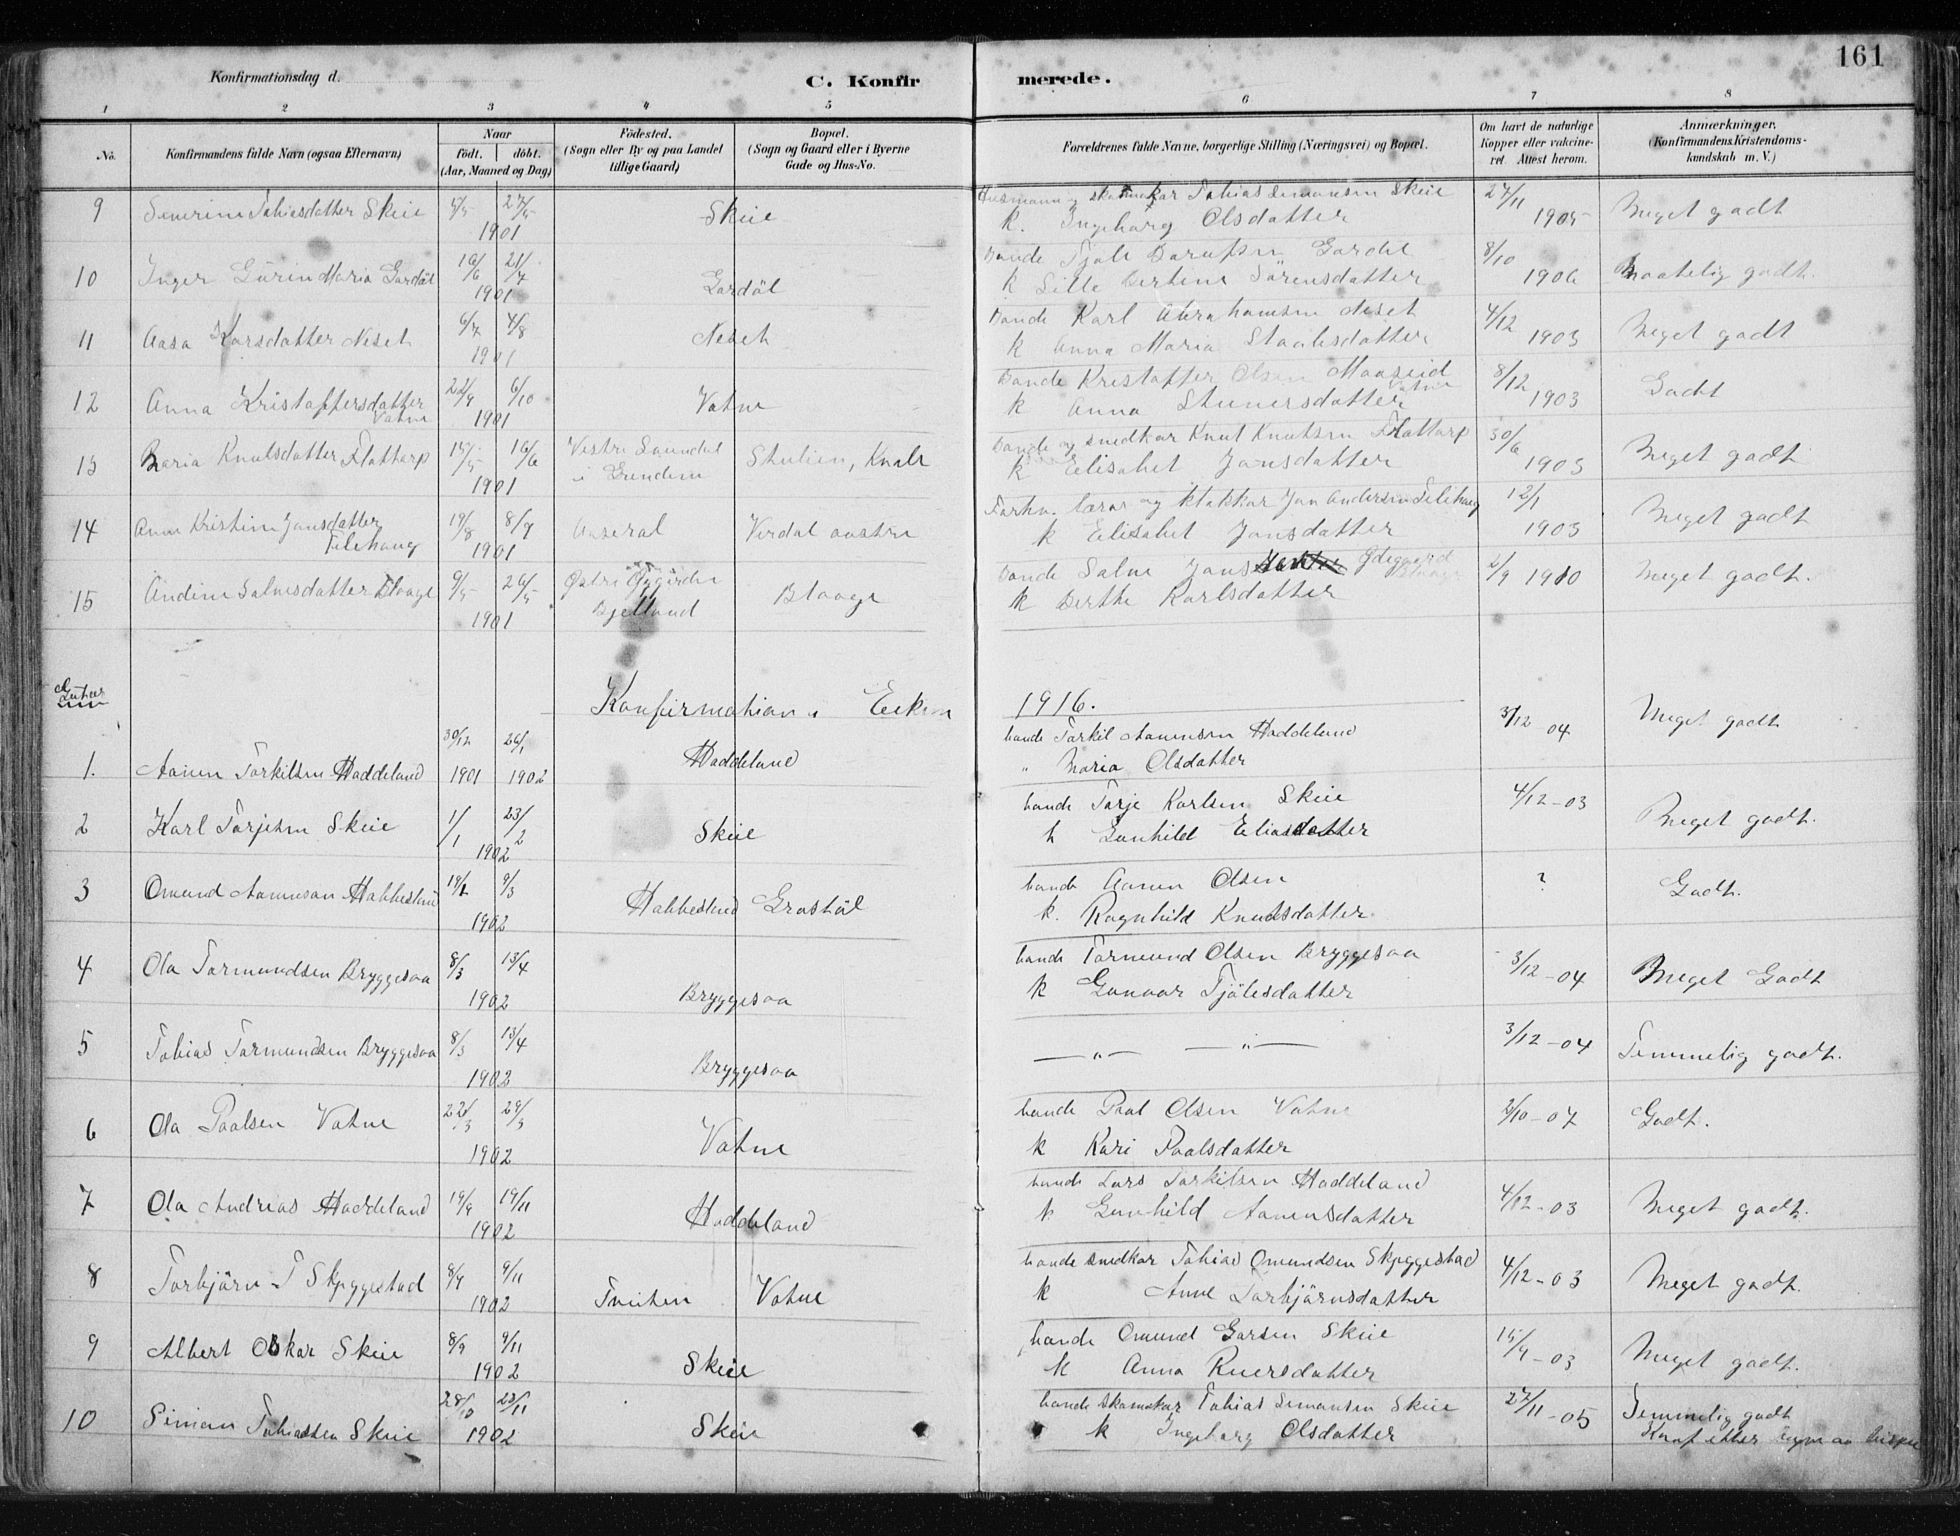 161
Konfirmationsdag d.
C. Konfir merede.
1 2 3 4 5 6 7 8
No.
Konfirmandens fulde Navn (ogsaa Efternavn)
Naar
födt. döbt.
(Aar, Maaned og Dag)
Födested.
(Sogn eller By og paa Landet
tillige Gaard)
Bopæl.
(Sogn og Gaard eller i Byerne
Gade og Hus-No.
Forældrenes fulde Navne, borgerlige Stilling (Næringsvei) og Bopæl.
Om havt de naturlige
Kopper eller vakcine-
ret. Attest herom.
Anmærkninger.
(Konfirmandens Kristendoms-
kundskab m. V.)
9 Severine Tobiasdatter Skeie 5/5 27/5 1901 Skeie
Husmann og skomakar Tobias Simonsen Skeie
k. Ingeborg Olsdatter 27/11 1905 Meget godt
10 Inger Gurin Maria Gardöl 16/6 21/7 1901 Gardöl
k Sille Bertine Sörensdatter 8/10 1906 Maatelig godt.
11 Aasa Karsdatter Neset 6/7 4/8 1901 Neset
Bonde Karl Abrahamsen Neset
k Anna Maria Staalesdatter 4/12 1903 Meget godt
12 Anna Kristoffersdatter Vatne 22/9 6/10 1901 Vatne
Bonde Kristoffer Olsen Maaseid Vatne
k Anna Steinersdatter 8/12 1903 Godt
13 Maria Knutsdatter Flottorp 15/5 16/6 1901 Vestre
Bonde og snedkar Knut Knutsen Flottorp
k Elisabet Jonsdatter 30/6 1903 Meget godt
14 Ann Kristine Jonsdatter 19/8 8/9 1901 Aaseral
Jon Andersen
k Elisabet Jonsdatter 12/1 1903 Meget godt
15 Andine Salvesdatter Blaage 9/5 26/5 1901 Bjelland Blaage
Bonde Salve Jons Ödegaard
k Berthe Karlsdatter 2/9 1910 Meget godt.
Konfirmation i Eiken 1916.
1. Aanen Torkilsen Haddeland 30/12 1901 26/1 1902 Haddeland
bonde Torkil Aanensen Haddeland
" Maria Olsdatter 3/12 04 Meget godt
2 Karl Torjesen Skeie 1/1 23/2 1902 Skeie
bonde Torje Karlsen Skeie
k Gunhild Eliasdatter 4/12-03 Meget godt.
3 Omund Aanensen Habbestad 19/1 9/3 1902 Habbestad
bonde Aanen Olsen
k. Ragnhild Knudsdatter. ? Godt.
4 Ola Tormundsen Bryggesaa 8/3 13/4 1902 Bryggesaa
bonde Tormund Olsen Bryggesaa
k Gunvor Tjölesdatter 3/12-04 Meget Godt
5 Tobias Tormundsen Bryggesaa 8/3 13/4 1902 Bryggesaa
—"— —"— 3/12-04 Temmelig godt.
6 Ola Paalsen Vatne 22/3 29/3 1902 Vatne
bonde Paal Olsen Vatne
k Kari Paalsdatter 2/10-07 Godt.
7 Ola Andrias Haddeland 19/9 19/11 1902 Haddeland
bonde Lars Torkilsen Haddeland
k Gunhild Aanensdatter 4/12-03 Meget godt.
8 Torbjörn T Skjeggestad 8/9 9/11 1902 Tveiten Vatne
bonde snedkar Tobias Omundsen Skjeggestad
k Anne Torbjörnsdatter 4/12-03 Meget godt.
9 Albert Oskar Skeie 8/9 9/11 1902 Skeie
bonde Omund Larsen Skeie
k Anna 15/9-03 Meget godt.
10 Simon Tobiassen Skeie 28/10 23/11 1902 Skeie
bonde skomakar Tobias Simonsen Skeie
k Ingeborg Olsdatter 27/11-05 Temmelig godt
Konf. etter